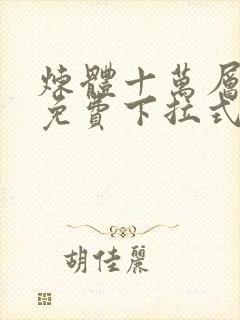 煉體十萬層
免費下拉式
胡佳麗